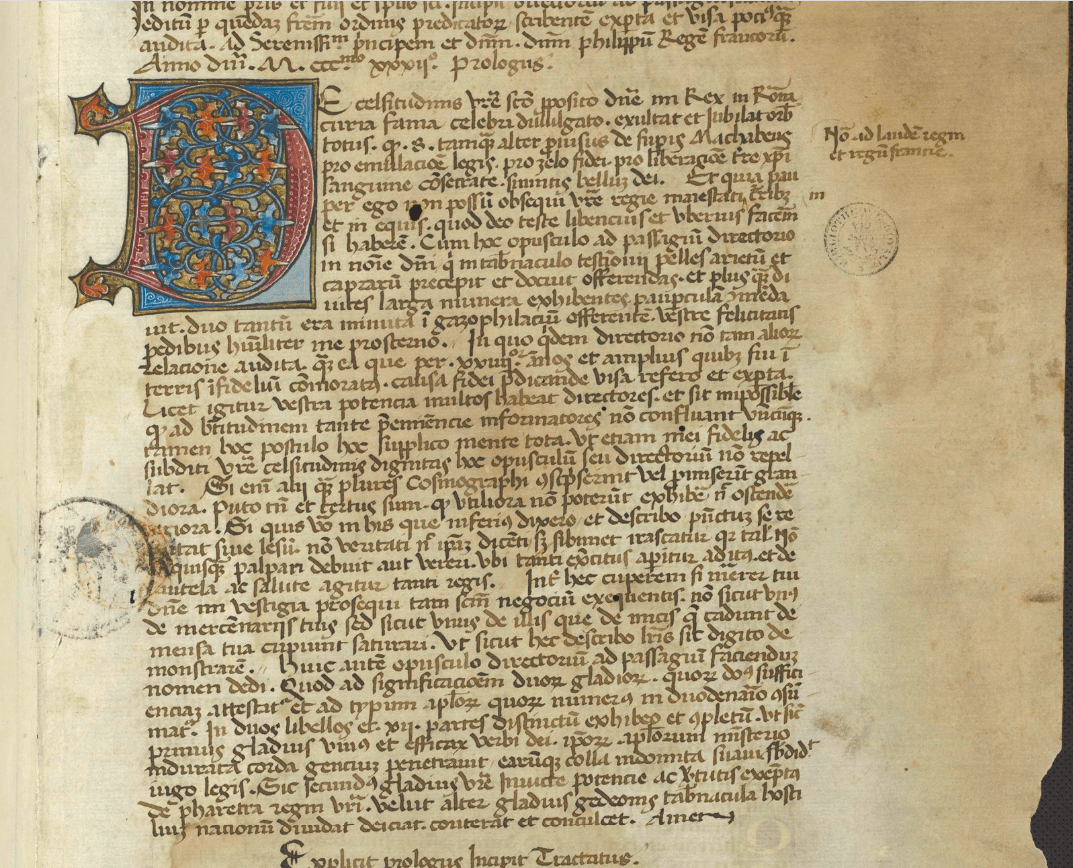 In nomine pris et filii et spus sci. Incipit directoriu ad passagiu
editu p quedaz frem ordinis predicatoz scribente expta et visa poci9 qz
audita. Ad Serenissimu principem et dnm. dnm philippu Regem francoru.
Anno dni. M. ccc.mo xxxii.o Prologus.
E celsitudinis vre sco pposito dne mi Rex in Romana
curia fama celebri diuulgato. exultat et Jubilat orbis
totus. q. s. tamqz alter piusus de fimis Machabeus
pro emulacoe legis. pro zelo fidei. pro liberacoe tre xpi
sanguine cosecrate. sumitis bellu dei. Et quia pau
per ego non possu obsequi vre regie maiestati
et in equis. quod deo teste libencius et vberius facem
si habere. Cum hoc opusculo ad passagiu directorio
in noie dni q in tabnaculo testionii pelles arietu et
capraru precepit et docuit offerendas. et plus qz di
uites larga munera exhibentes paupcula
uit. duo tantu era minuta i gazophilaciu offerente. vestre felicitatis
pedibus humiliter me prosterno. In quo qdem directorio no tam alioz
relacione audita qz ea que per xxiiii.or anos et amplius quibz fui i
terris ifideliu comorat9. causa fidei pdicande visa refero et expta.
Licet igitur vestra potencia multos habeat directores. et sit impossibile
q ad btitudinem tante preminencie informatores no confluant vndiqz.
tamen hoc postulo hoc supplico mente tota. vt etiam mei fidelis ac
subditi vre celsitudinis dignitas hoc opusculu seu directoriu no repel
lat. Si eni alii qz plures Cosmographi vel pmiserit gran
diora. Puto tn et certus sum. q vtiliora no poterut exhibe n ostende
Si quis vo in his que inferi9 dixero et describo puctuz se re
putat siue lesu. no veritati n ipaz dicenti sz sibimet irascatur qr tal no
quisqz palpari debuit aut vereri. vbi tanti excitus apitur adit9. et de
cautela ac salute agitur tanti regis. Int hec cuperem si merer tui
dne mi vestigia psequi tam scm negociu exequentis. no sicut vn9
de mercenariis tuis sed sicut vnus de illis que de micis q cadunt de
mensa tua cupiunt saturari. vt sicut hec describo lris sic digito de
monstrare. Huic aute opusculo directoriu ad passagiu faciendu
nomen dedi. Quod ad significacioem duor gladior. quorz do9 suffici
enciaz attestat et ad typum aploz quoz numerus in duodenaio osu
mat. In duos libellos et xii. partes distinctu exhibeo et opletu. vt sic
primus gladius viu9 et efficax verbi dei. ipoz aplorum misterio
indurata corda genciu penetrauit earuqz colla indomita suaui sbdidt
iugo legis. Sic secund9 gladius vre Inuicte potencie ac vtutis exepta
de pharetra regni vri. velut alter gladius gedeonis tabnacula hosti
liu nacionu diuidat deiciat conterat et conculcet. Amen
Explicit prologus Incipit Tractatus.
No. ad laude regni
et regu francie.